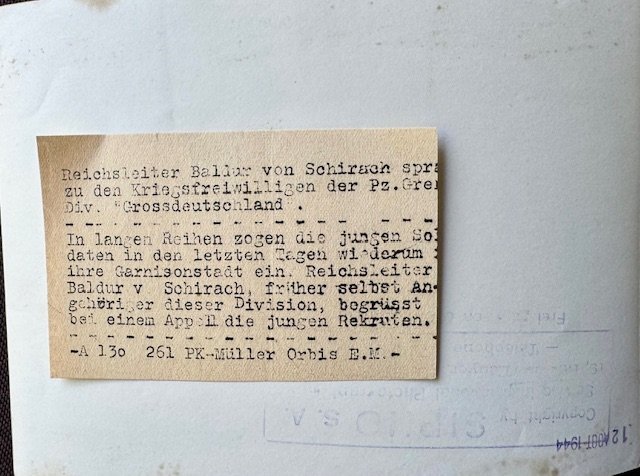 Reichsleiter Baldur von Schirach spra
zu den Kriegsfreiwilligen der Pz.Gre
Div. "Grossdeutschland".
In langen Reihen zogen die jungen Sol
daten in den letzten Tagen wiederum
ihre Garnisonstadt ein. Reichsleiter
Baldur v Schirach, früher selbst An-
gehöriger dieser Division, begrüsst
bei einem Appell die jungen Rekruten.
-A 13o 261 PK-Müller Orbis E.M.-
Copyright by
12 AOUT 1944